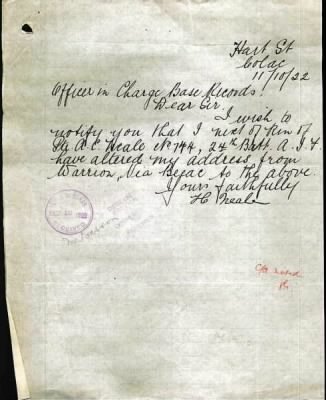 Hart St
Colac
11/10/22
Officer in Charge Base Records.
Dear Sir.
I wish to
notify you that I next of kin of
A. C. Neale No 744, 24th Batt. A.I.F
have altered my address from
Warrion, via Beeac to the above.
Yours faithfully
H. Neale
C/A noted